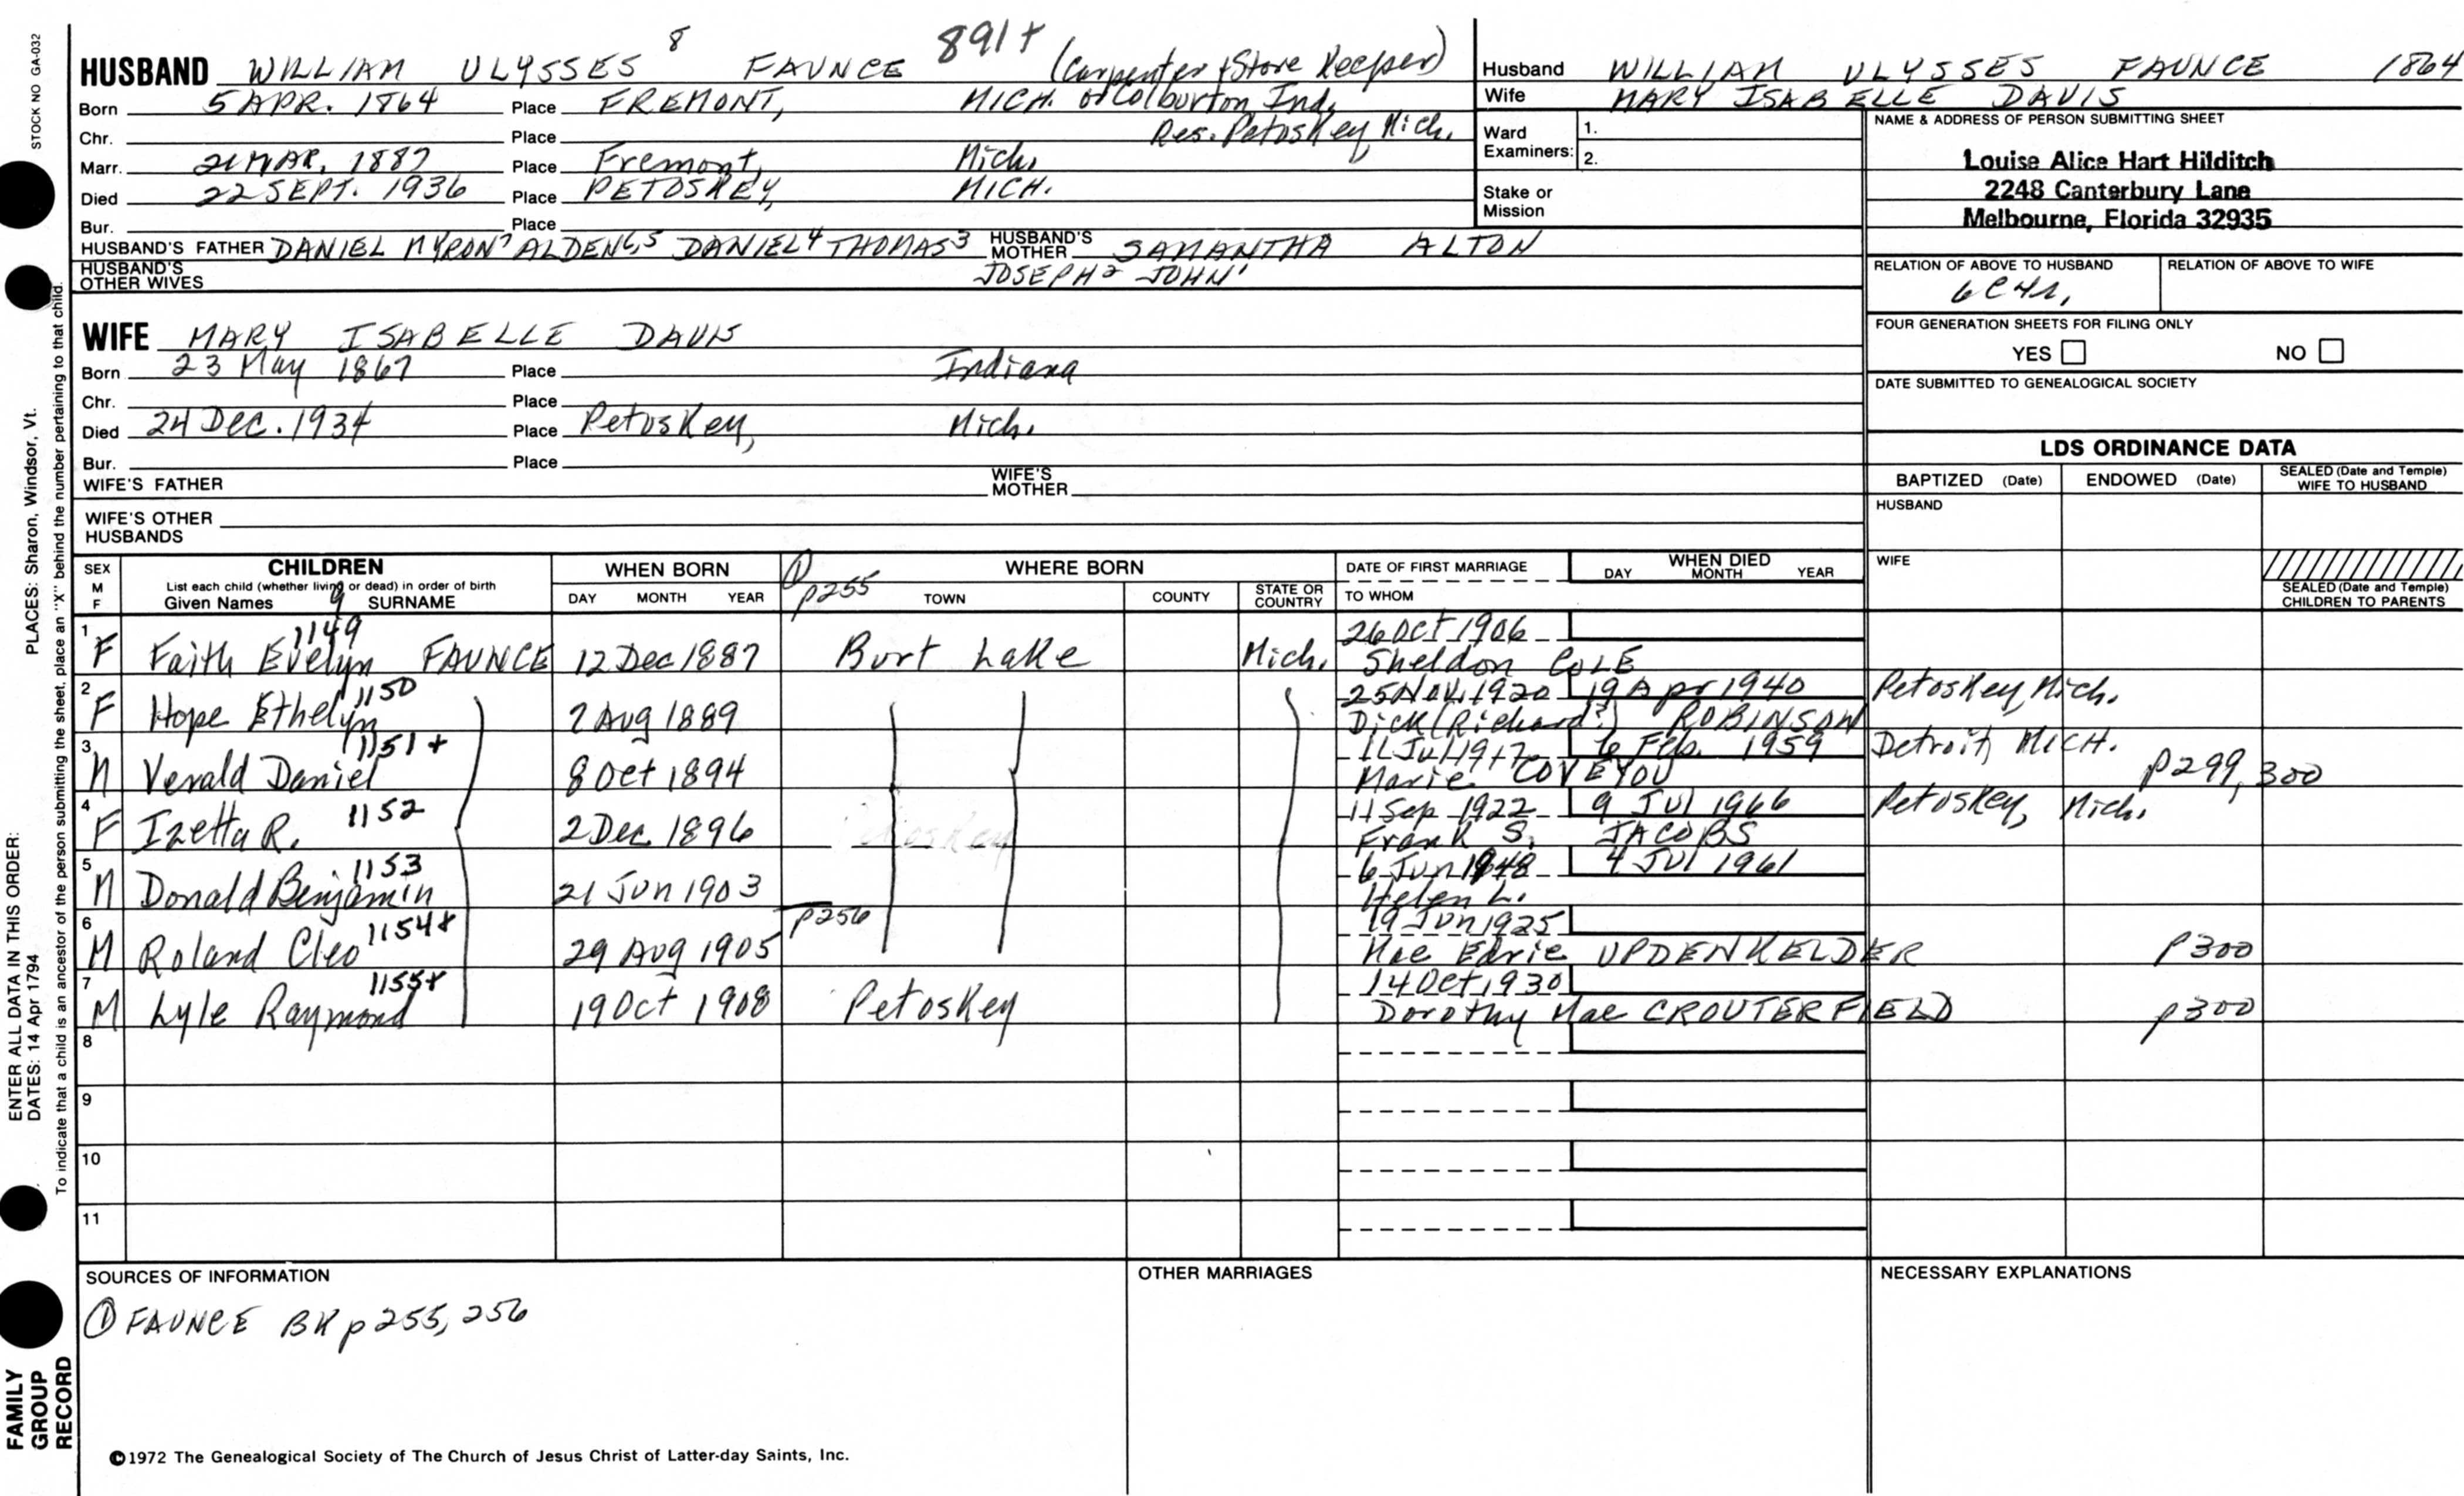 STOCK NO GA-032
HUSBAND WILLIAM ULYSSES 8 FAUNCE 891+ (Carpenter + Store Keeper)
Born 5 APR. 1864 Place FREMONT, MICH. or Colburton Ind.
Chr. Place Res. Petoskey Mich.
Marr. 21 MAR. 1887 Place Fremont, Mich.
Died 22 SEPT. 1936 Place PETOSKEY, MICH.
Bur. Place
HUSBAND'S FATHER DANIEL MYRON7 ALDEN6,5 DANIEL4 THOMAS3 HUSBAND'S MOTHER SAMANTHA ALTON
HUSBAND'S OTHER WIVES JOSEPH2 JOHN1
Husband WILLIAM ULYSSES FAUNCE 1864
Wife MARY ISABELLE DAVIS
Ward Examiners: 1.
2.
Stake or Mission
NAME & ADDRESS OF PERSON SUBMITTING SHEET
Louise Alice Hart Hilditch
2248 Canterbury Lane
Melbourne, Florida 32935
RELATION OF ABOVE TO HUSBAND RELATION OF ABOVE TO WIFE
6C4R,
FOUR GENERATION SHEETS FOR FILING ONLY
YES NO
DATE SUBMITTED TO GENEALOGICAL SOCIETY
WIFE MARY ISABELLE DAVIS
Born 23 May 1867 Place Indiana
Chr. Place
Died 24 Dec. 1934 Place Petoskey, Mich.
Bur. Place
WIFE'S FATHER WIFE'S MOTHER
WIFE'S OTHER HUSBANDS
LDS ORDINANCE DATA
BAPTIZED (Date) ENDOWED (Date) SEALED (Date and Temple) WIFE TO HUSBAND
HUSBAND
WIFE
SEALED (Date and Temple) CHILDREN TO PARENTS
SEX M F
CHILDREN
List each child (whether living or dead) in order of birth
Given Names 9 SURNAME
WHEN BORN
DAY MONTH YEAR
① p255
WHERE BORN
TOWN COUNTY STATE OR COUNTRY
DATE OF FIRST MARRIAGE
TO WHOM
WHEN DIED
DAY MONTH YEAR
1 F Faith Evelyn 1149 FAUNCE 12 Dec 1887 Burt Lake Mich. 26 Oct 1906
Sheldon COLE
2 F Hope Ethelyn 1150 2 Aug 1889 25 Nov. 1920 19 Apr 1940 Petoskey, Mich.
Dick (Richard?) ROBINSON
3 M Verald Daniel 1151+ 8 Oct 1894 11 Jul 1917 6 Feb. 1959 Detroit, MICH.
Marie COVEYOU p299, 300
4 F Izetta R. 1152 2 Dec 1896 Petoskey 11 Sep 1922 9 Jul 1966 Petoskey, Mich.
Frank S. JACOBS
5 M Donald Benjamin 1153 21 Jun 1903 6 Jun 1948 4 Jul 1961
Helen L.
p256
6 M Roland Cleo 1154+ 29 Aug 1905 19 Jun 1925
Mae Edrie UPDENKELDER p300
7 M Lyle Raymond 1155+ 19 Oct 1908 Petoskey 14 Oct, 1930
Dorothy Mae CROUTERFIELD p300
8
9
10
11
SOURCES OF INFORMATION
① FAUNCE BK p255, 256
OTHER MARRIAGES
NECESSARY EXPLANATIONS
©1972 The Genealogical Society of The Church of Jesus Christ of Latter-day Saints, Inc.
FAMILY GROUP RECORD
ENTER ALL DATA IN THIS ORDER:
DATES: 14 Apr 1794
PLACES: Sharon, Windsor, Vt.
To indicate that a child is an ancestor of the person submitting the sheet, place an "X" behind the number pertaining to that child.